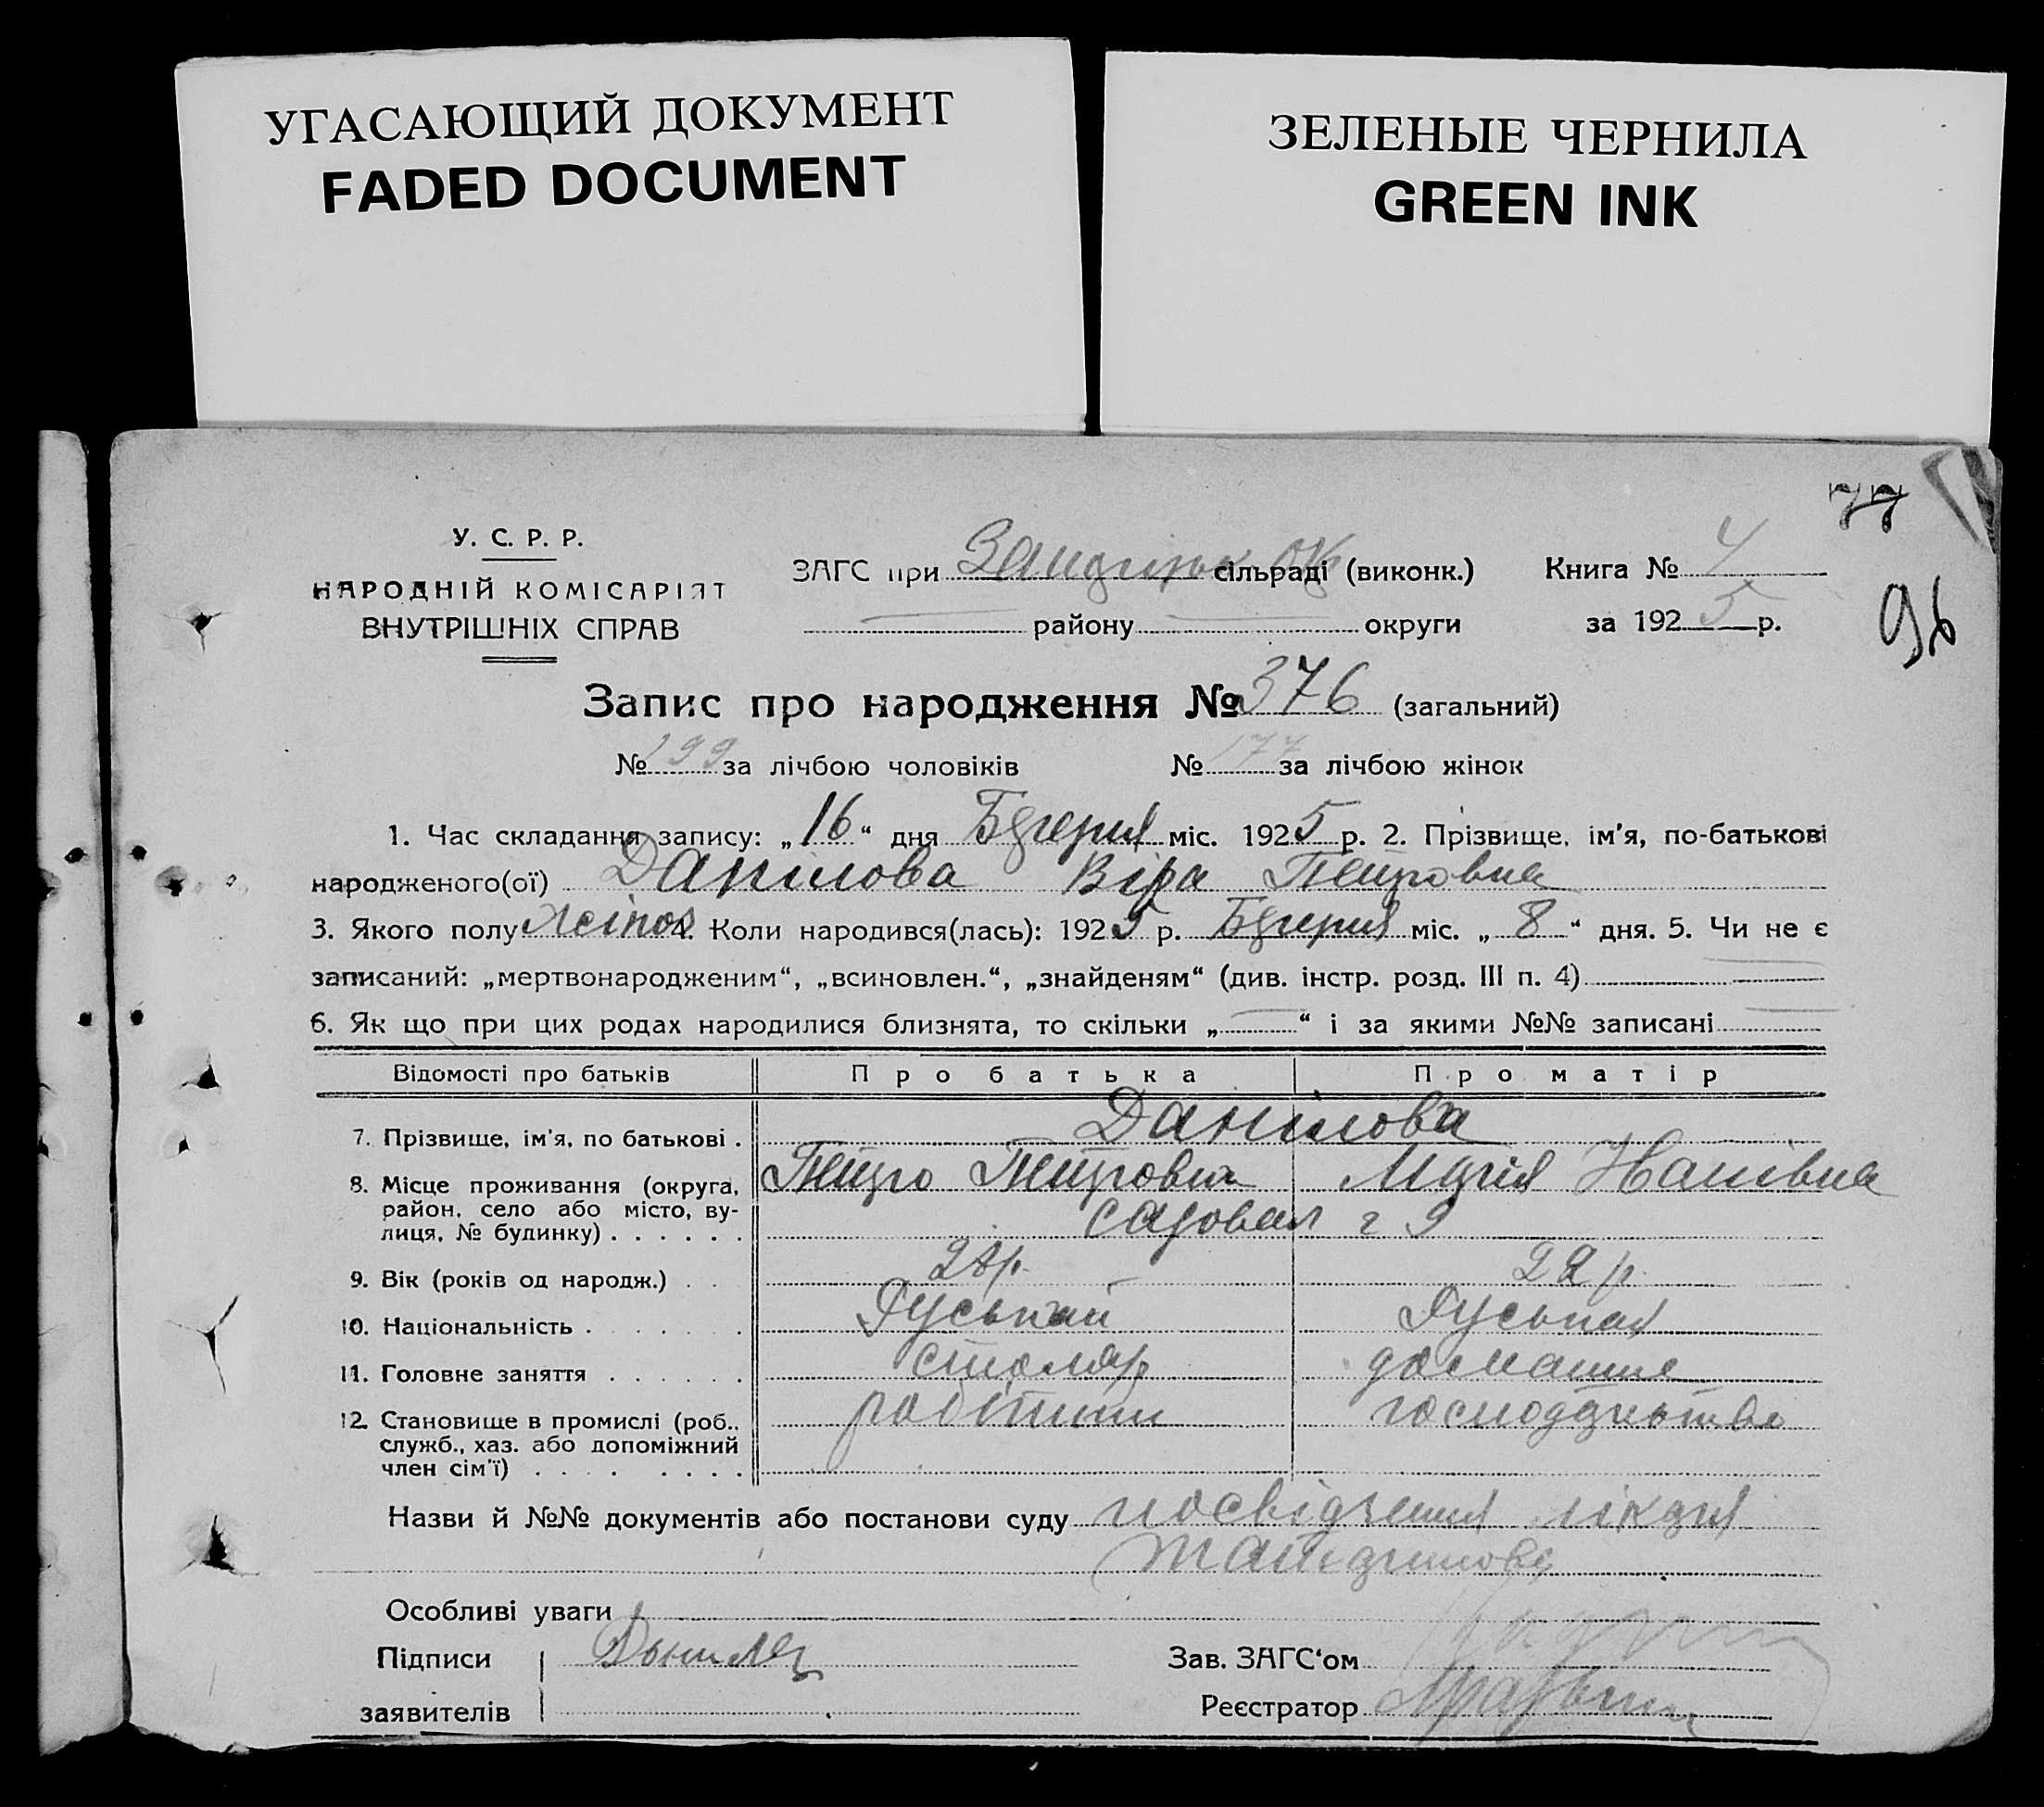 УГАСАЮЩИЙ ДОКУМЕНТ
FADED DOCUMENT
ЗЕЛЕНЫЕ ЧЕРНИЛА
GREEN INK
77
96
У. С. Р. Р.
НАРОДНІЙ КОМІСАРІЯТ
ВНУТРІШНІХ СПРАВ
ЗАГС при сільраді (виконк.) Книга № 4
району округи за 1925 р.
Запис про народження № 376 (загальний)
№ 199 за лічбою чоловіків № 177 за лічбою жінок
1. Час складання запису: „16“ дня міс. 1925 р. 2. Прізвище, ім'я, по-батькові
народженого(ої) Данілова Віра Петровна
3. Якого полу жіноч 4. Коли народився(лась): 1925 р. міс. „8“ дня. 5. Чи не є
записаний: „мертвонародженим“, „всиновлен.“, „знайденям“ (див. інстр. розд. III п. 4)
6. Як що при цих родах народилися близнята, то скільки „ “ і за якими №№ записані
Відомості про батьків Про батька Про матір
7. Прізвище, ім'я, по батькові . Данілова
8. Місце проживання (округа, Петро Петрович Марія
район, село або місто, ву- Садовая 9
лиця, № будинку) . . . . . .
9. Вік (років од народж.) . . 28 р. 22 р.
10. Національність . . . . . . Руський Руська
11. Головне заняття . . . . . . столяр домашнє
12. Становище в промислі (роб., робітник господарство
служб., хаз. або допоміжний
член сім'ї) . . . . . . . .
Назви й №№ документів або постанови суду посвідчення лікаря
Особливі уваги
Підписи Зав. ЗАГС'ом
заявителів Реєстратор